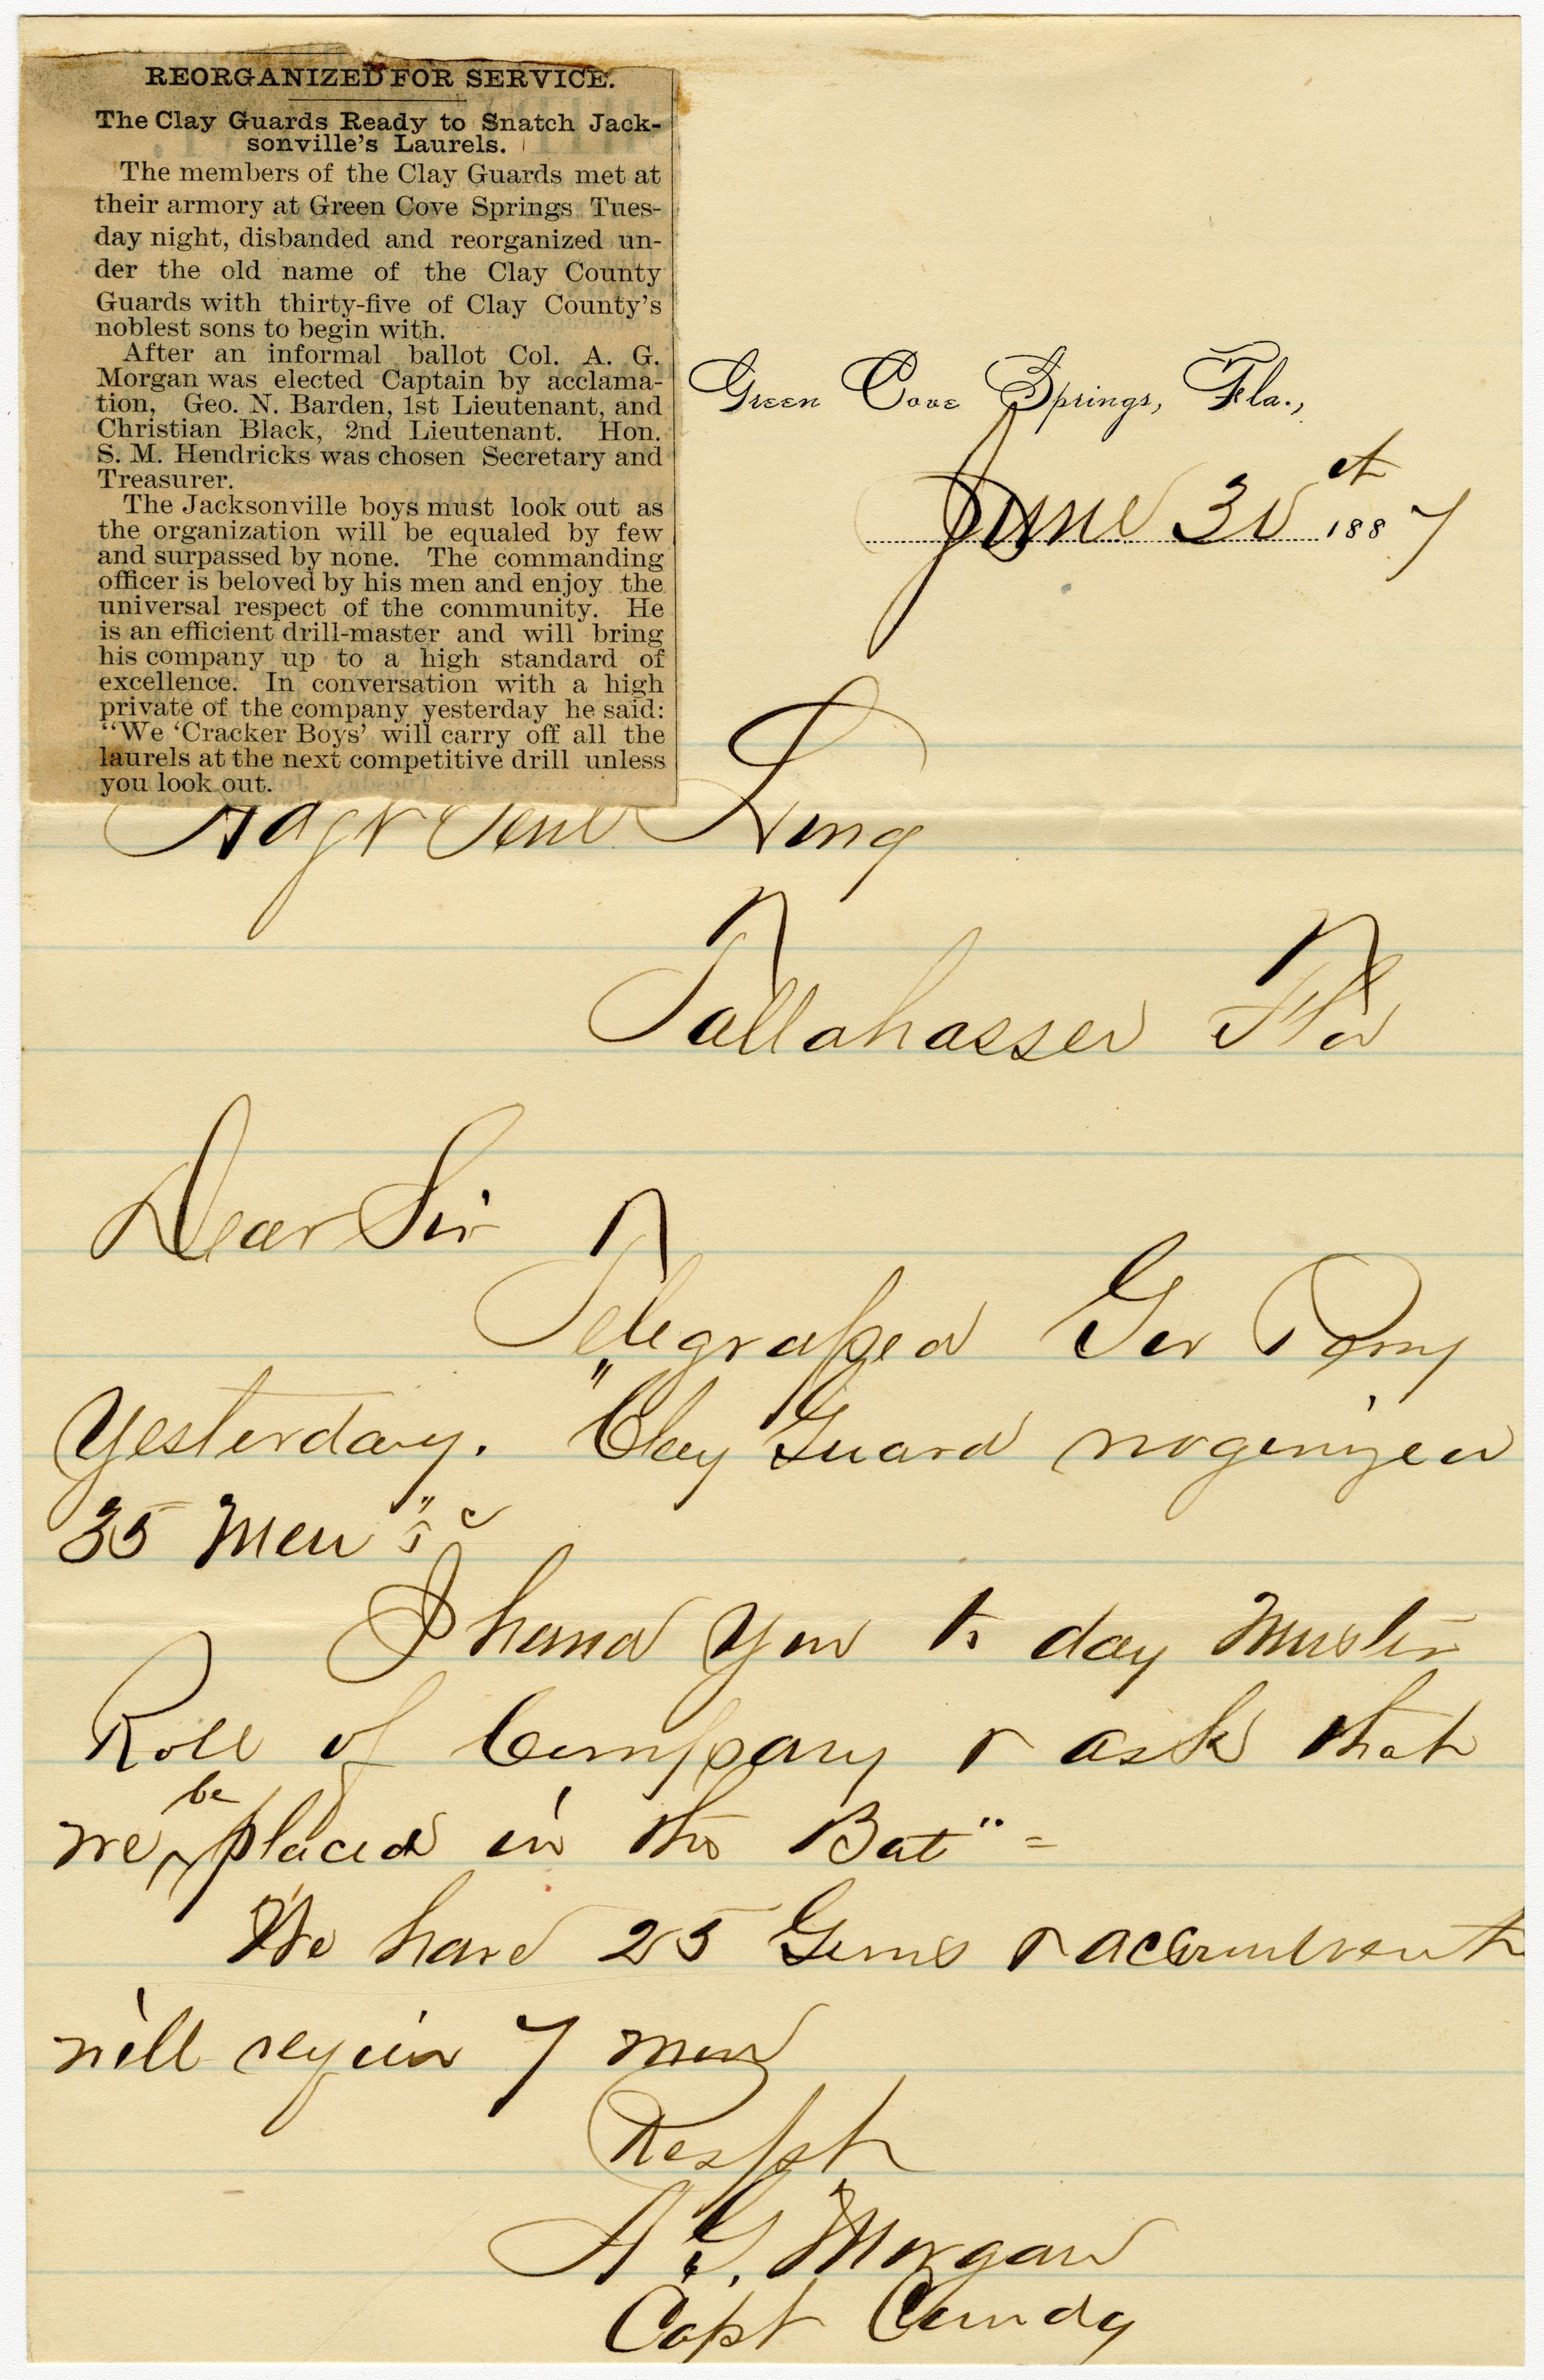 REORGANIZED FOR SERVICE.
The Clay Guards Ready to Snatch Jack-
sonville's Laurels.
The members of the Clay Guards met at
their armory at Green Cove Springs Tues-
day night, disbanded and reorganized un-
der the old name of the Clay County
Guards with thirty-five of Clay County's
noblest sons to begin with.
After an informal ballot Col. A. G.
Morgan was elected Captain by acclama-
tion, Geo. N. Barden, 1st Lieutenant, and
Christian Black, 2nd Lieutenant. Hon.
S. M. Hendricks was chosen Secretary and
Treasurer.
The Jacksonville boys must look out as
the organization will be equaled by few
and surpassed by none. The commanding
officer is beloved by his men and enjoy the
universal respect of the community. He
is an efficient drill-master and will bring
his company up to a high standard of
excellence. In conversation with a high
private of the company yesterday he said:
"We 'Cracker Boys' will carry off all the
laurels at the next competitive drill unless
you look out.
Green Cove Springs, Fla.,
June 30 1887
Adgt Genl Lang
Tallahassee Fla
Dear Sir
Telegraped Gov Perry
Yesterday. "Clay Guard
35 Men"
I hand you to day Muster
Roll of Company & ask that
we be placed in the Bat" =
We have 25 Guns &
will requir 7 more
Respt
A. G. Morgan
Capt Comdg